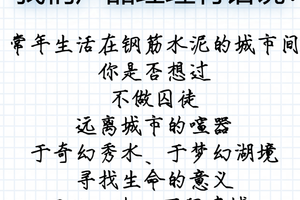 常年生活在钢筋水泥的城市间
你是否想过
不做囚徒
远离城市的喧嚣
于奇幻秀水、于梦幻湖境
寻找生命的意义